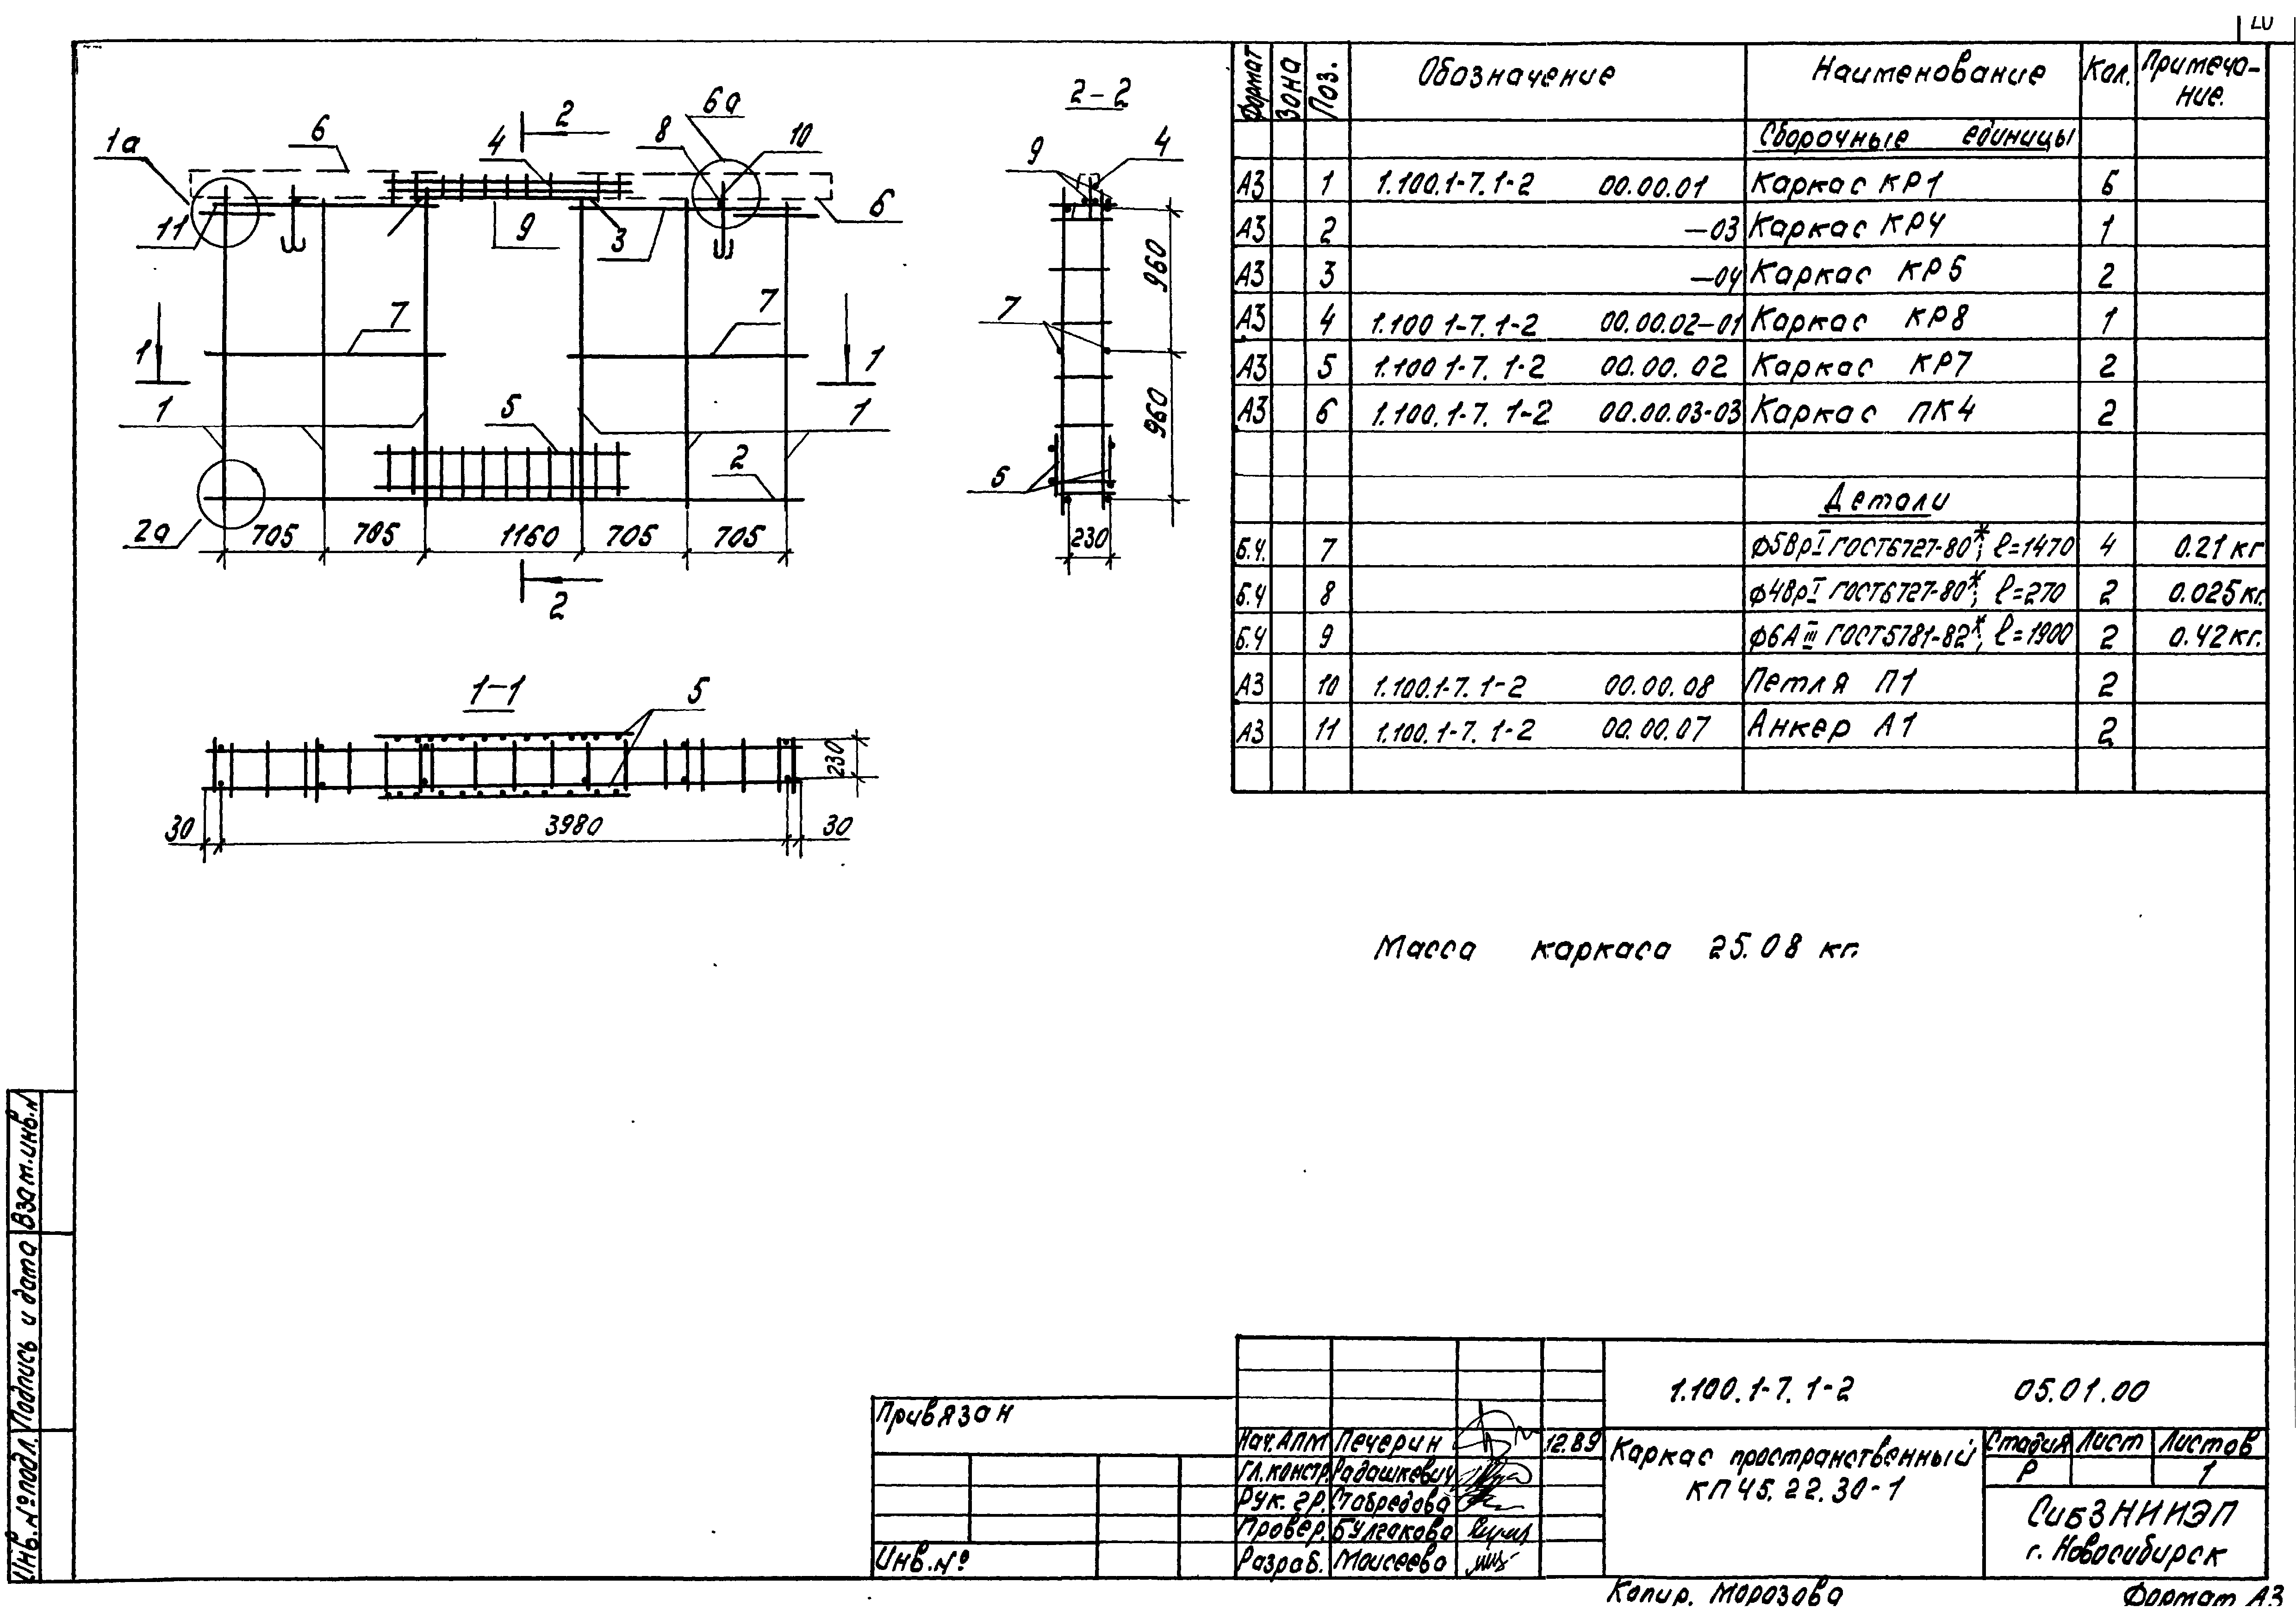 1а
6
2
4
8
6а
10
11
9
3
6
7
7
1
1
1
5
1
2
2а
705
705
1160
705
705
2
2-2
9
4
7
960
960
5
230
1-1
5
230
30
3980
30
Формат Зона Поз. Обозначение Наименование Кол. Примеча-
ние.
Сборочные единицы
А3 1 1.100.1-7.1-2 00.00.01 Каркас КР1 6
А3 2 -03 Каркас КР4 1
А3 3 -04 Каркас КР5 2
А3 4 1.100 1-7.1-2 00.00.02-01 Каркас КР8 1
А3 5 1.100 1-7.1-2 00.00.02 Каркас КР7 2
А3 6 1.100.1-7.1-2 00.00.03-03 Каркас ПК4 2
Детали
Б.Ч. 7 ϕ5ВрI ГОСТ6727-80*; ℓ=1470 4 0.21кг
Б.Ч 8 ϕ4ВрI ГОСТ6727-80*; ℓ=270 2 0.025кг.
Б.Ч 9 ϕ6АIII ГОСТ5781-82*; ℓ=1900 2 0.42кг.
А3 10 1.100.1-7.1-2 00.00.08 Петля П1 2
А3 11 1.100.1-7.1-2 00.00.07 Анкер А1 2
Масса каркаса 25.08 кг.
Взам.инв.N
Подпись и дата
Инв.№подл.
Привязан
Инв.№
Нач.АПМ Печерин 12.89
Гл.констр. Радашкевич
Рук.гр. Ставредова
Провер. Булгакова
Разраб. Моисеева
1.100.1-7.1-2 05.01.00
Каркас пространственный
КП45.22.30-1
Стадия Лист Листов
Р 1
СибЗНИИЭП
г. Новосибирск
Копир. Морозова Формат А3